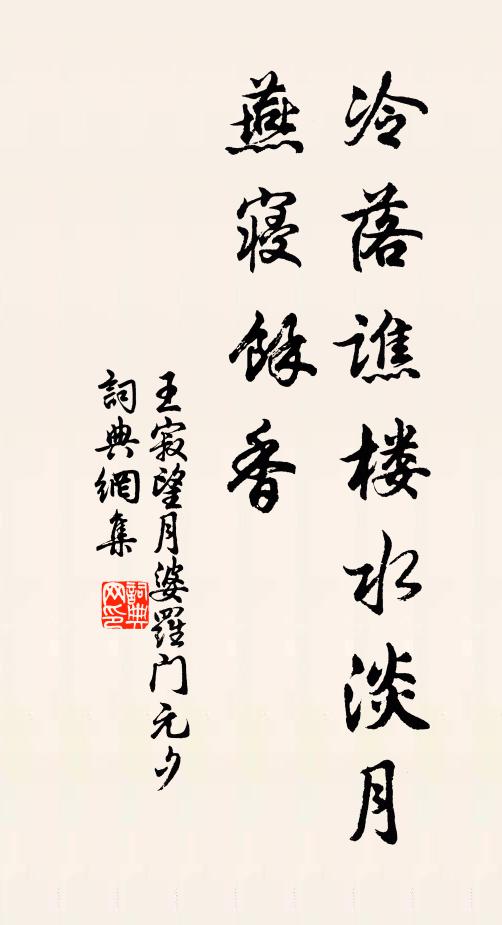 冷落譙楼水淡月
燕寢餘香
王寂望月婆羅门元夕
詞典網集
詞典网印